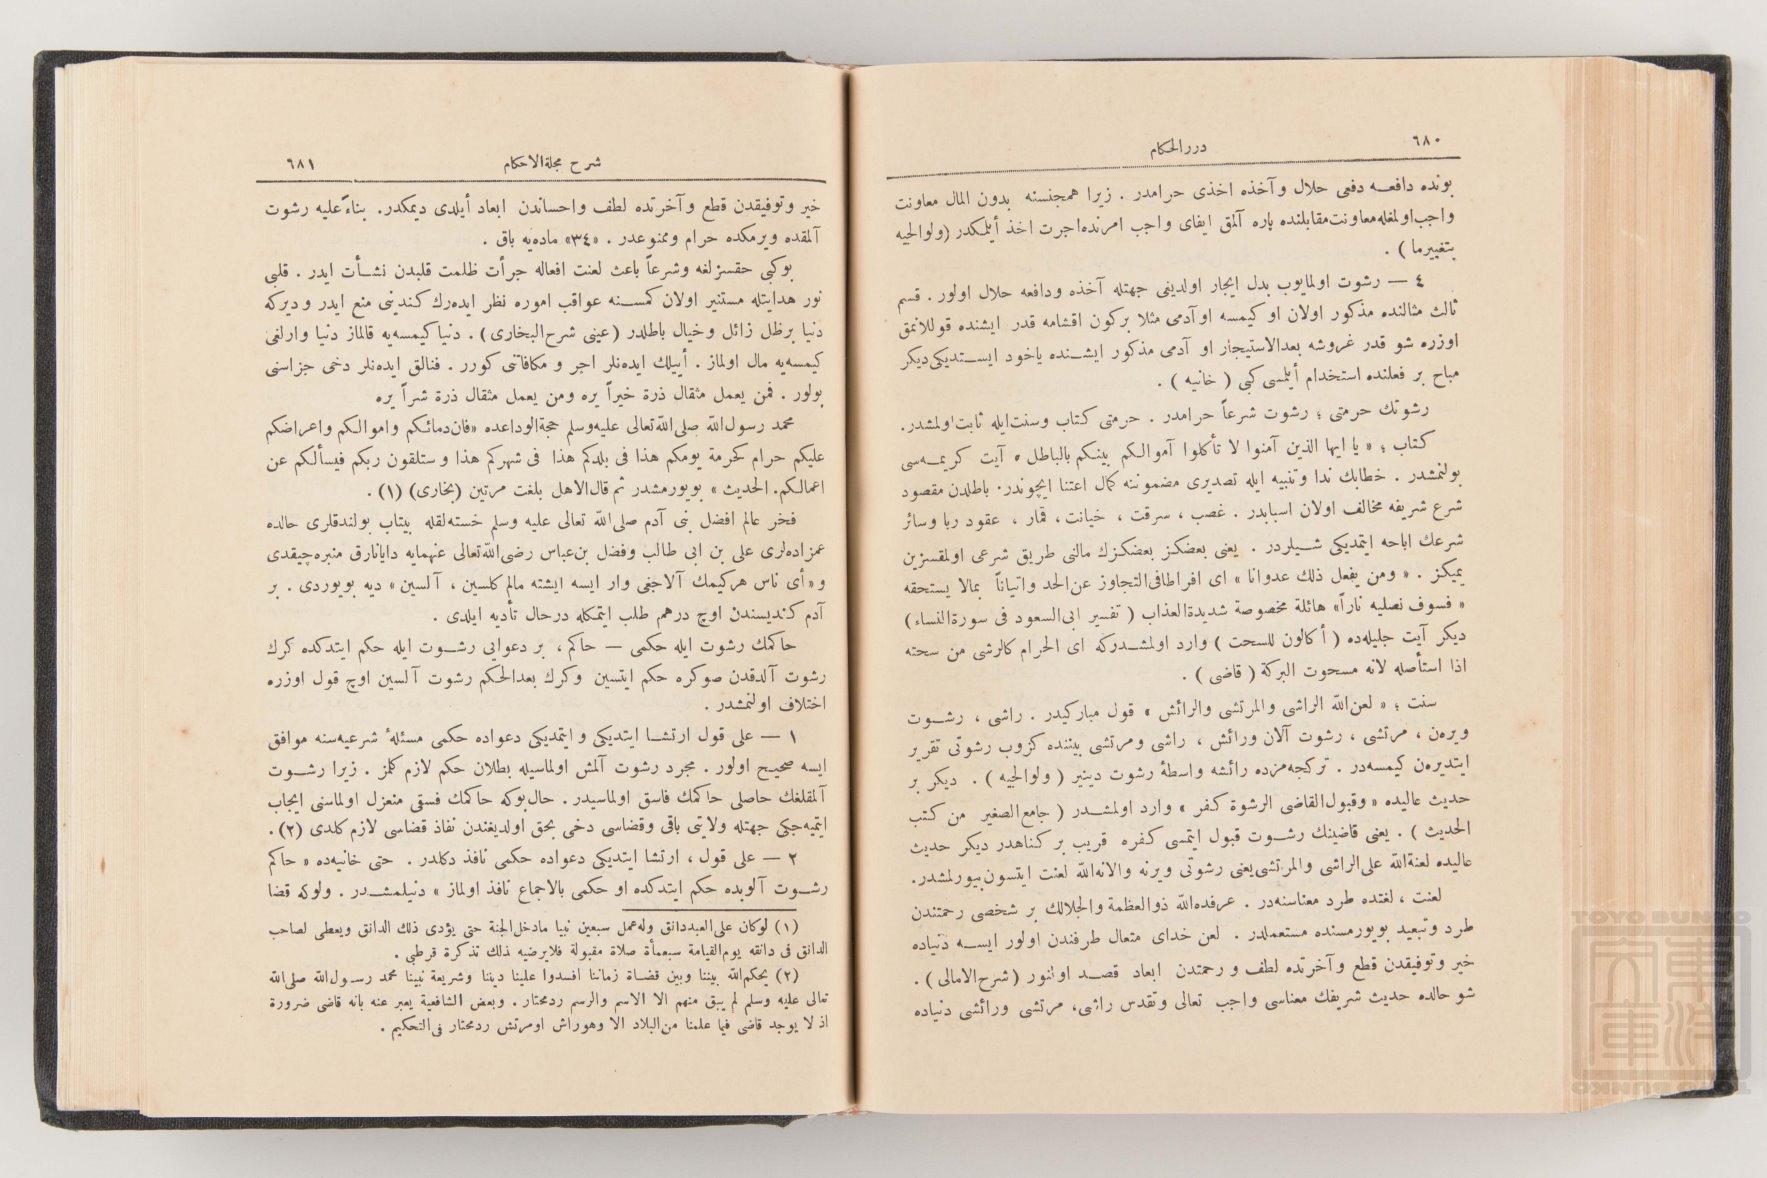 ٦٨٠
دررالحكام
بونده دافعه دفعی حلال وآخذه اخذی حرامدر . زیرا همجنسنه بدون المال معاونت
واجب اولمغله معاونت مقابلنده پاره آلمق ایفای واجب امرنده اجرت اخذ أیلمكدر (ولوالحیه
بتغییرما ) .
٤ — رشوت اولمایوب بدل ایجار اولدیغی جهتله آخذه ودافعه حلال اولور . قسم
ثالث مثالنده مذكور اولان او كیمسه او آدمی مثلا بركون اقشامه قدر ایشنده قوللانمق
اوزره شو قدر غروشه بعدالاستیجار او آدمی مذكور ایشنده یاخود ایستدیكی دیكر
مباح بر فعلنده استخدام أیلمسی كبی ( خانیه ) .
رشوتك حرمتی ؛ رشوت شرعاً حرامدر . حرمتی كتاب وسنت ایله ثابت اولمشدر.
كتاب ؛ « یا ایها الذین آمنوا لا تأكلوا آموالكم بینكم بالباطل » آیت كریمه‌سی
بولنمشدر . خطابك ندا وتنبیه ایله تصدیری مضموننه كمال اعتنا ایچوندر. باطلدن مقصود
شرع شریفه مخالف اولان اسبابدر . غصب ، سرقت ، خیانت، قمار ، عقود ربا وسائر
شرعك اباحه ایتمدیكی شیلردر . یعنی بعضكز بعضكزك مالنی طریق شرعی اولمقسزین
یمیكز . « ومن یفعل ذلك عدوانا » ای افراطافی‌التجاوز عن‌الحد واتیاناً بمالا یستحقه
« فسوف نصلیه ناراً» هائلة مخصوصة شدیدةالعذاب ( تفسیر ابی‌السعود فی سورةالنساء )
دیكر آیت جلیله‌ده ( أكالون للسحت ) وارد اولمشدركه ای الحرام كالرشی من سحته
اذا استأصله لانه مسحوت البركة ( قاضی ) .
سنت ؛ « لعن‌الله الراشی والمرتشی والرائش » قول مباركیدر . راشی ، رشوت
ویره‌ن ، مرتشی ، رشوت آلان ورائش ، راشی ومرتشی بیننده كزوب رشوتی تقریر
ایتدیره‌ن كیمسه‌در . تركجه‌مزده رائشه واسطهٔ رشوت دینیر ( ولوالجیه ) . دیكر بر
حدیث عالیده « وقبول القاضی الرشوة كفر » وارد اولمشدر ( جامع الصغیر من كتب
الحدیث ) . یعنی قاضینك رشوت قبول ایتمسی كفره قریب بر كناهدر دیكر حدیث
عالیده لعنة‌الله علی‌الراشی والمرتشی یعنی رشوتی ویرنه والانه‌الله لعنت ایتسون بیورلمشدر.
لعنت ، لغتده طرد معناسنه‌در . عرفده‌الله ذوالعظمة والجلالك بر شخصی رحمتندن
طرد وتبعید بویورمسنده مستعملدر . لعن خدای متعال طرفندن اولور ایسه دنیاده
خیر وتوفیقدن قطع وآخرتده لطف و رحمتدن ابعاد قصد اولنور (شرح‌الامالی ) .
شو حالده حدیث شریفك معناسی واجب تعالی وتقدس راشی، مرتشی ورائشی دنیاده
شرح مجلةالاحكام
٦٨١
خیر وتوفیقدن قطع وآخرتده لطف واحساندن ابعاد أیلدی دیمكدر. بناءً علیه رشوت
آلمقده ویرمكده حرام وممنوعدر . «٣٤» ماده‌یه باق .
بوكبی حقسزلغه وشرعاً باعث لعنت افعاله جرأت ظلمت قلبدن نشأت ایدر . قلبی
نور هدایتله مستنیر اولان كمسنه عواقب اموره نظر ایده‌رك كندینی منع ایدر ودیركه
دنیا برظل زائل وخیال باطلدر (عینی شرح‌البخاری) . دنیا كیمسه‌یه قالماز دنیا وارلغی
كیمسه‌یه مال اولماز . أییلك ایده‌نلر اجر و مكافاتنی كورر . فنالق ایده‌نلر دخی جزاسنی
بولور . فمن یعمل مثقال ذرة خیراً یره ومن یعمل مثقال ذرة شراً یره
محمد رسول‌الله صلی‌الله‌تعالی علیه‌وسلم حجةالوداعده «فان‌دمائكم واموالكم واعراضكم
علیكم حرام كحرمة یومكم هذا فی بلدكم هذا فی شهركم هذا وستلقون ربكم فیسألكم عن
اعمالكم. الحدیث » بویورمشدر ثم قال‌الاهل بلغت مرتین (بخاری) (١) .
فخر عالم افضل بنی آدم صلی‌الله تعالی علیه وسلم خسته‌لقله بیتاب بولندقلری حالده
عمزاده‌لری علی بن ابی طالب وفضل بن‌عباس رضی‌الله‌تعالی عنهمایه دایانارق منبره‌چیقدی
و« أی ناس هركیمك آلاجغی وار ایسه ایشته مالم كلسین ، آلسین » دیه بویوردی . بر
آدم كندیسندن اوچ درهم طلب ایتمكله درحال تأدیه ایلدی .
حاكمك رشوت ایله حكمی — حاكم ، بر دعوایی رشوت ایله حكم ایتدكده كرك
رشوت آلدقدن صوكره حكم ایتسین وكرك بعدالحكم رشوت آلسین اوچ قول اوزره
اختلاف اولنمشدر .
١ — علی قول ارتشا ایتدیكی و ایتمدیكی دعواده حكمی مسئلهٔ شرعیه‌سنه موافق
ایسه صحیح اولور . مجرد رشوت آلمش اولماسیله بطلان حكم لازم كلمز . زیرا رشوت
آلمقلغك حاصلی حاكمك فاسق اولماسیدر . حال‌بوكه حاكمك فسقی منعزل اولماسنی ایجاب
ایتمیه‌جكی جهتله ولایتی باقی وقضاسی دخی بحق اولدیغندن نفاذ قضاسی لازم كلدی (٢) .
٢ — علی قول ، ارتشا ایتدیكی دعواده حكمی نافذ دكلدر . حتی خانیه‌ده « حاكم
رشوت آلوبده حكم ایتدكده او حكمی بالاجماع نافذ اولماز » دنیلمشدر . ولوكه قضا
(١) لوكان علی‌العبددانق وله‌عمل سبعین نبیا مادخل‌الجنة حتی یؤدی ذلك الدانق ویعطی لصاحب
الدانق فی دانقه یوم‌القیامة سبعمأة صلاة مقبولة فلایرضیه ذلك تذكرة قرطبی .
(٢) یحكم‌الله بیننا وبین قضاة زماننا افسدوا علینا دیننا وشریعة نبینا محمد رسول‌الله صلی‌الله
تعالی علیه وسلم لم یبق منهم الا الاسم والرسم ردمحتار . وبعض الشافعیة یعبر عنه بانه قاضی ضرورة
اذ لا یوجد قاضی فیما علمنا من‌البلاد الا وهوراش اومرتش ردمحتار فی‌التحكیم .
TOYO BUNKO
東洋文庫
TOYO BUNKO